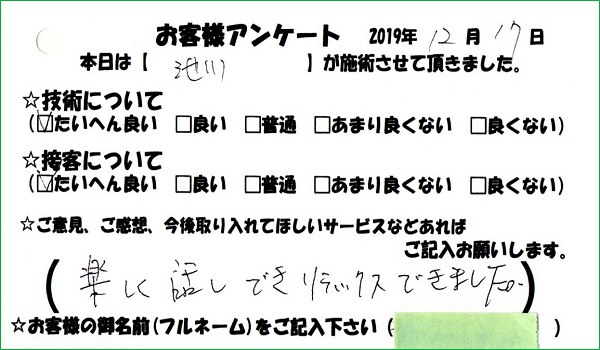 お客様アンケート 2019年 12月 17日
本日は【 池川 】が施術させて頂きました。
☆技術について
(☑たいへん良い □良い □普通 □あまり良くない □良くない)
☆接客について
(☑たいへん良い □良い □普通 □あまり良くない □良くない)
☆ご意見、ご感想、今後取り入れてほしいサービスなどあれば
ご記入お願いします。
(楽しく話しできリラックスできました。)
☆お客様の御名前(フルネーム)をご記入下さい( )